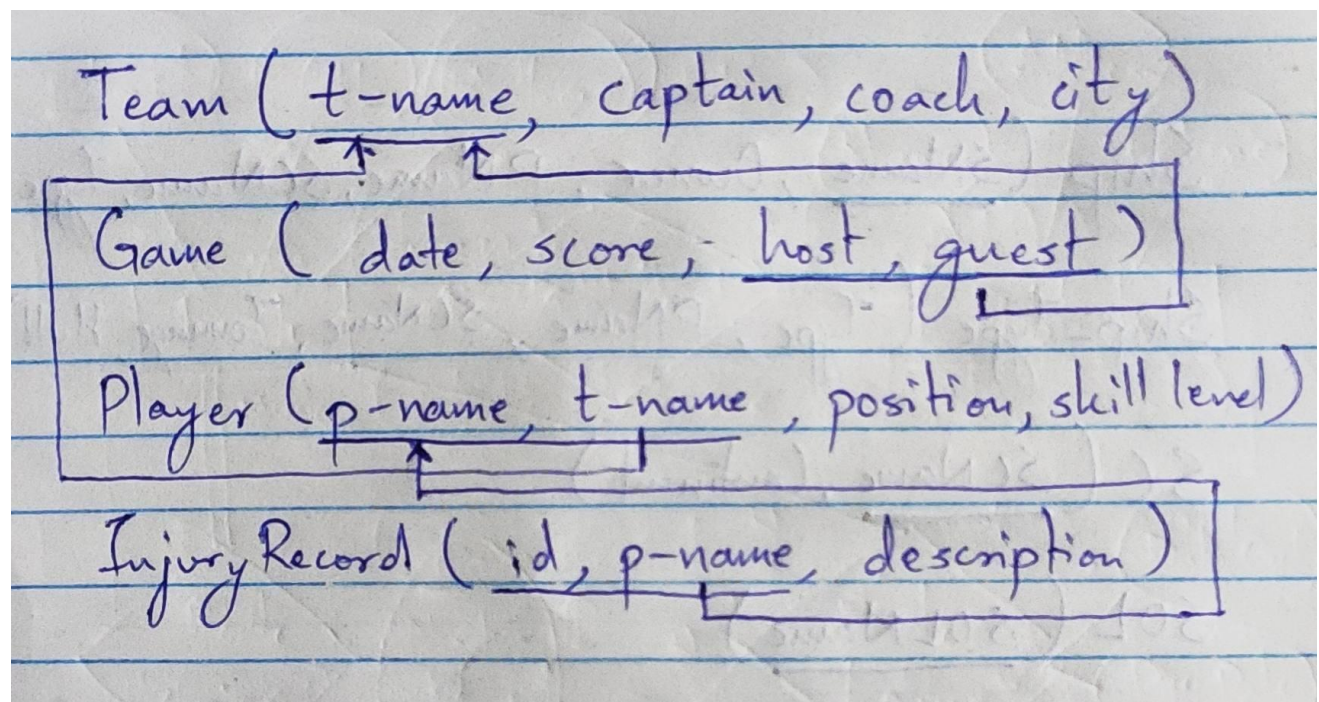 Team ( t-name, captain, coach, city )
Game ( date, score, host, guest )
Player ( p-name, t-name , position, skill level )
Injury Record ( id, p-name, description )